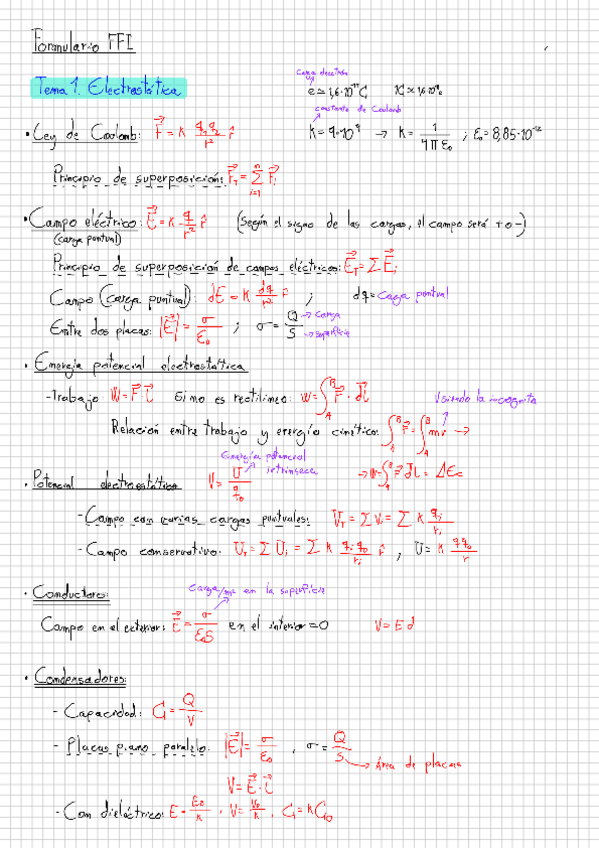 Formulario FFI
Carga electrón
Tema 1. Electrostática e ≈ 1,6·10⁻¹⁹ C
constante de Coulomb
• Ley de Coulomb: F⃗ = K q₁q₂/r² r̂ K = 9·10⁹ → K = 1/4πε₀ ; ε₀ = 8,85·10⁻¹²
Principio de superposición: F⃗_T = Σ_{i=1}^{n} F⃗ᵢ
• Campo eléctrico: E⃗ = K q/r² r̂ (Según el signo de las cargas, el campo será + o -)
(carga pontual)
Principio de superposición de campos eléctricos: E⃗_T = Σ E⃗ᵢ
Campo (carga puntual): dE = K dq/r² r̂ ; dq = Carga pontual
Entre dos placas: |E⃗| = σ/ε₀ ; σ = Q/S → carga → superficie
• Energía potencial electrostática
- Trabajo W = F⃗·l⃗ Si no es rectilíneo: W = ∫_A^B F⃗·dl⃗ Usando la incognita
Relación entre trabajo y energía cinética: ∫_A^B F⃗ = ∫_A^B →
Energía potencial intrínseca → W = ∫_A^B F⃗ dl⃗ = ΔEc
• Potencial electrostático V = U/q₀
- Campo con varias cargas puntuales: U_T = Σ Vᵢ = Σ K qᵢ/rᵢ
- Campo conservativo: U_T = Σ Uᵢ = Σ K qᵢ·q₀/rᵢ r̂ , U = K q q₀/r
Carga/m² en la superficie
• Conductores:
Campo en el exterior: E⃗ = σ/ε₀S en el interior = 0 V = E d
• Condensadores:
- Capacidad: C = Q/V
- Placas plano paralelo: |E⃗| = σ/ε₀ , σ = Q/S → Área de placas
V = E⃗·l⃗
- Con dieléctrico: E = E₀/K , V = V₀/K , C = KC₀